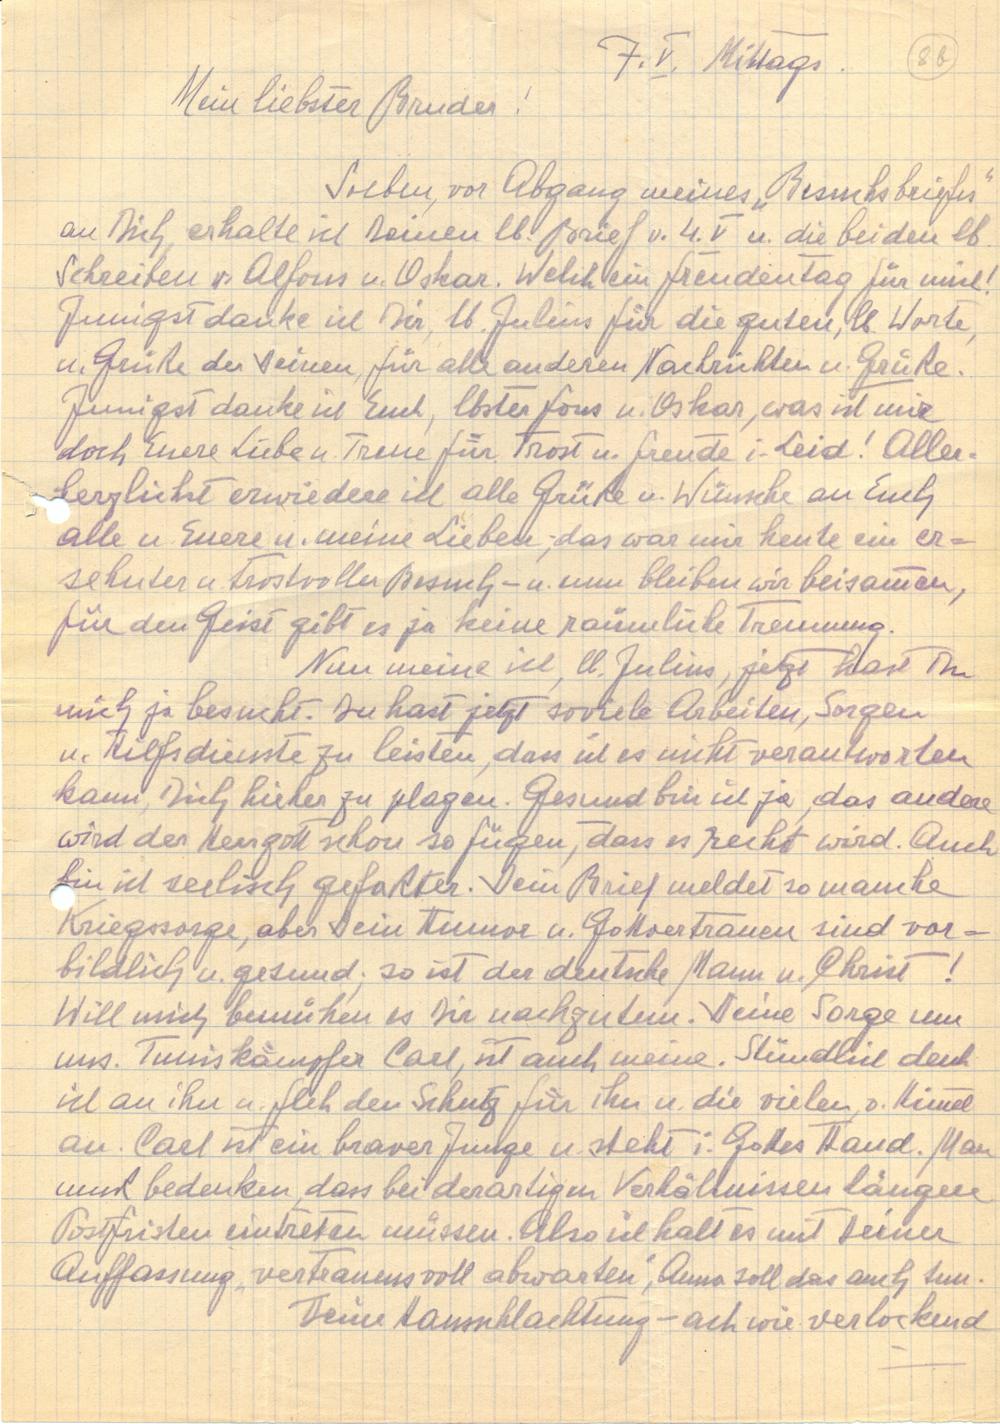 7. V. Mittags. 8b
Mein liebster Bruder!
Soeben, vor Abgang meines „Besuchsbriefes“
an Dich, erhalte ich Deinen lb. Brief v. 4. V u. die beiden lb.
Schreiben v. Alfons u. Oskar. Welch ein Freudentag für mich!
Innigst danke ich Dir, lb. Julius für die guten, lb. Worte,
u. Grüße der Deinen, für alle anderen Nachrichten u. Grüße.
Innigst danke ich Euch, lbster Fons u. Oskar, was ist mir
doch Euere Liebe u. Treue für Trost u. Freude i. Leid! Aller-
herzlichst erwiedere ich alle Grüße u. Wünsche an Euch
alle u Euere u. meine Lieben; das war mir heute ein er=
sehnter u. trostvoller Besuch – u. nun bleiben wir beisamen,
für den Geist gibt es ja keine räumliche Trennung.
Nun meine ich, lb. Julius, jetzt hast Du
mich ja besucht. Du hast jetzt soviele Arbeiten, Sorgen
u. Hilfsdienste zu leisten, dass ich es nicht verantworten
kann, Dich hieher zu plagen. Gesund bin ich ja, das andere
wird der Herrgott schon so fügen, dass es recht wird. Auch
bin ich seelisch gefaßter. Dein Brief meldet so manche
Kriegssorge, aber Dein Humor u. Gottvertrauen sind vor=
bildlich u. gesund; so ist der deutsche Mann u. Christ!
Will mich bemühen es Dir nachzutun. Deine Sorge um
uns. Tuniskämpfer Carl, ist auch meine. Stündlich denk
ich an ihn u. fleh den Schutz für ihn u. die vielen, v. Himel
an. Carl ist ein braver Junge u. steht i. Gottes Hand. Man
muß bedenken, dass bei derartigen Verhältnissen längere
Postfristen eintreten müssen. Also ich halt es mit Deiner
Auffassung „vertrauensvoll abwarten“, Anna soll das auch tun.
Deine Hausschlachtung – ach wie verlockend